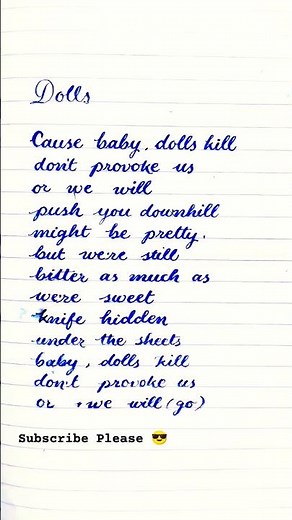 Dolls
Cause baby, dolls kill
don't provoke us
or we will
push you downhill
might be pretty.
but we're still
bitter as much as
we're sweet
knife hidden
under the sheets
baby, dolls kill
don't provoke us
or we will (go)
Subscribe Please 😎